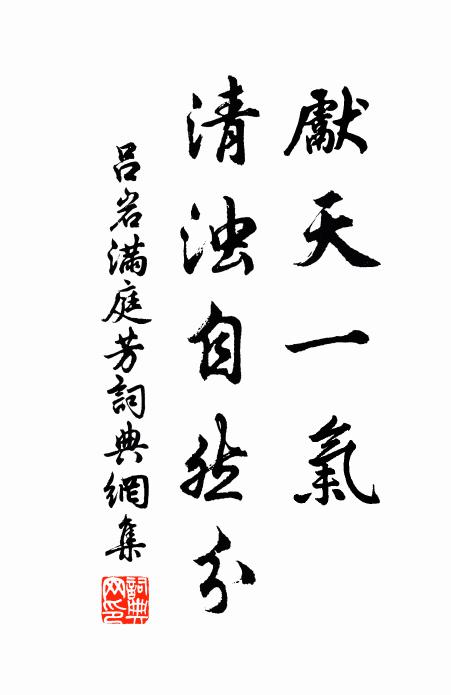 獻天一氣
清浊自然分
吕岩满庭芳詞典網集
詞典
网印